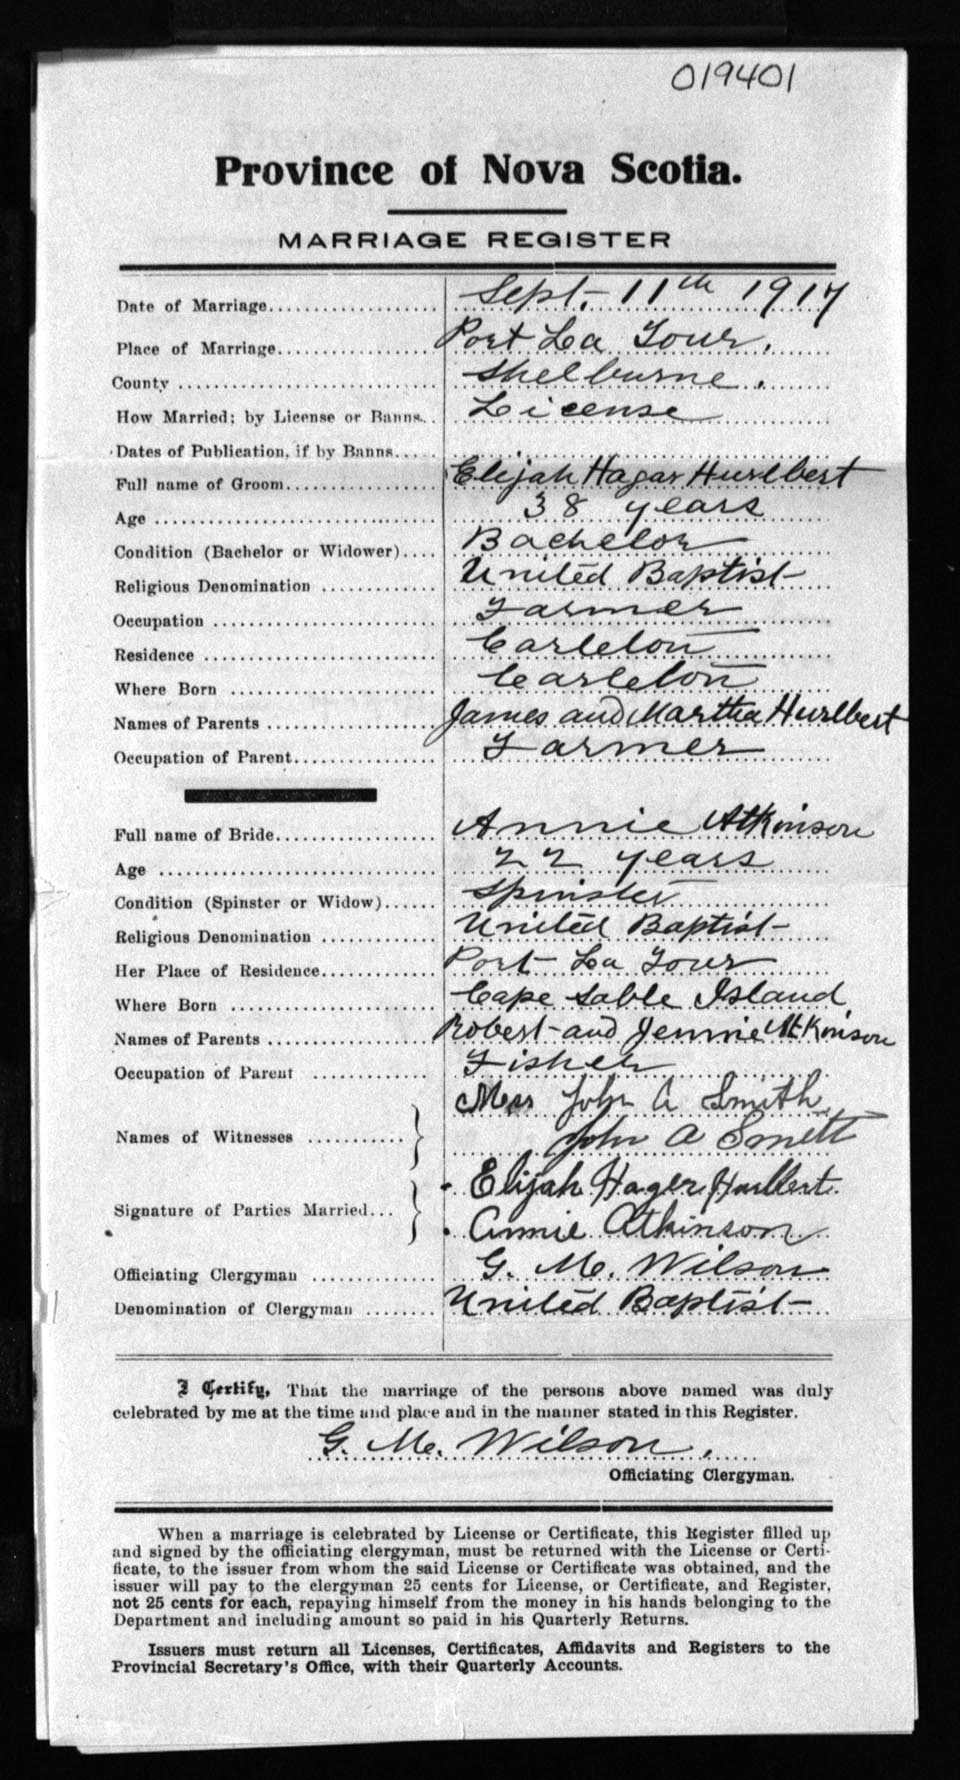 019401
Province of Nova Scotia.
MARRIAGE REGISTER
Date of Marriage................... Sept. 11th 1917
Place of Marriage.................. Port La Tour.
County ............................ Shelburne.
How Married; by License or Banns... License
Dates of Publication, if by Banns.....
Full name of Groom................. Elijah Hagar Hurlbert
Age ............................... 38 years
Condition (Bachelor or Widower).... Bachelor
Religious Denomination ............ United Baptist
Occupation ........................ Farmer
Residence ......................... Carleton
Where Born ........................ Carleton
Names of Parents .................. James and Martha Hurlbert
Occupation of Parent............... Farmer
Full name of Bride................. Annie Atkinson
Age ............................... 22 years
Condition (Spinster or Widow)...... Spinster
Religious Denomination ............ United Baptist
Her Place of Residence............. Port La Tour
Where Born ........................ Cape Sable Island
Names of Parents .................. Robert and Jennie Atkinson
Occupation of Parent .............. Fisher
Mrs John A Smith
Names of Witnesses ..........
John A Smith
Elijah Hager Hurlbert.
Signature of Parties Married...
Annie Atkinson
Officiating Clergyman ............. G. M. Wilson
Denomination of Clergyman ........ United Baptist
I Certify, That the marriage of the persons above named was duly
celebrated by me at the time and place and in the manner stated in this Register.
G. M. Wilson.
Officiating Clergyman.
When a marriage is celebrated by License or Certificate, this Register filled up
and signed by the officiating clergyman, must be returned with the License or Certi-
ficate, to the issuer from whom the said License or Certificate was obtained, and the
issuer will pay to the clergyman 25 cents for License, or Certificate, and Register,
not 25 cents for each, repaying himself from the money in his hands belonging to the
Department and including amount so paid in his Quarterly Returns.
Issuers must return all Licenses, Certificates, Affidavits and Registers to the
Provincial Secretary's Office, with their Quarterly Accounts.